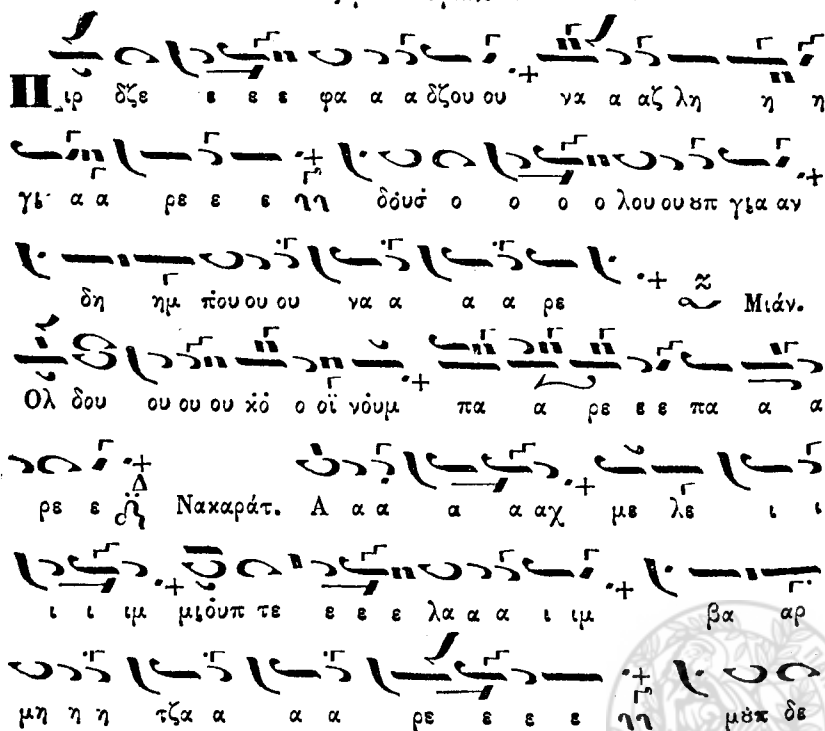 Πιρ δζε ε ε ε φα α α δζου ου να α αζ λη η η
γι α α ρε ε ε δόυσ ο ο ο ο λου ου ȣπ για αν
δη ημ που ου ου να α α α ρε Μιάν.
Ολ δου ου ου ου κὸ ο οϊ νόυμ πα α ρε ε ε πα α α
ρε ε Νακαράτ. Α α α α α αχ με λε ι ι
ι ι ιμ μιόυπ τε ε ε ε λα α α ι ιμ βα αρ
μη η η τζα α α α ρε ε ε ε μȣπ δε